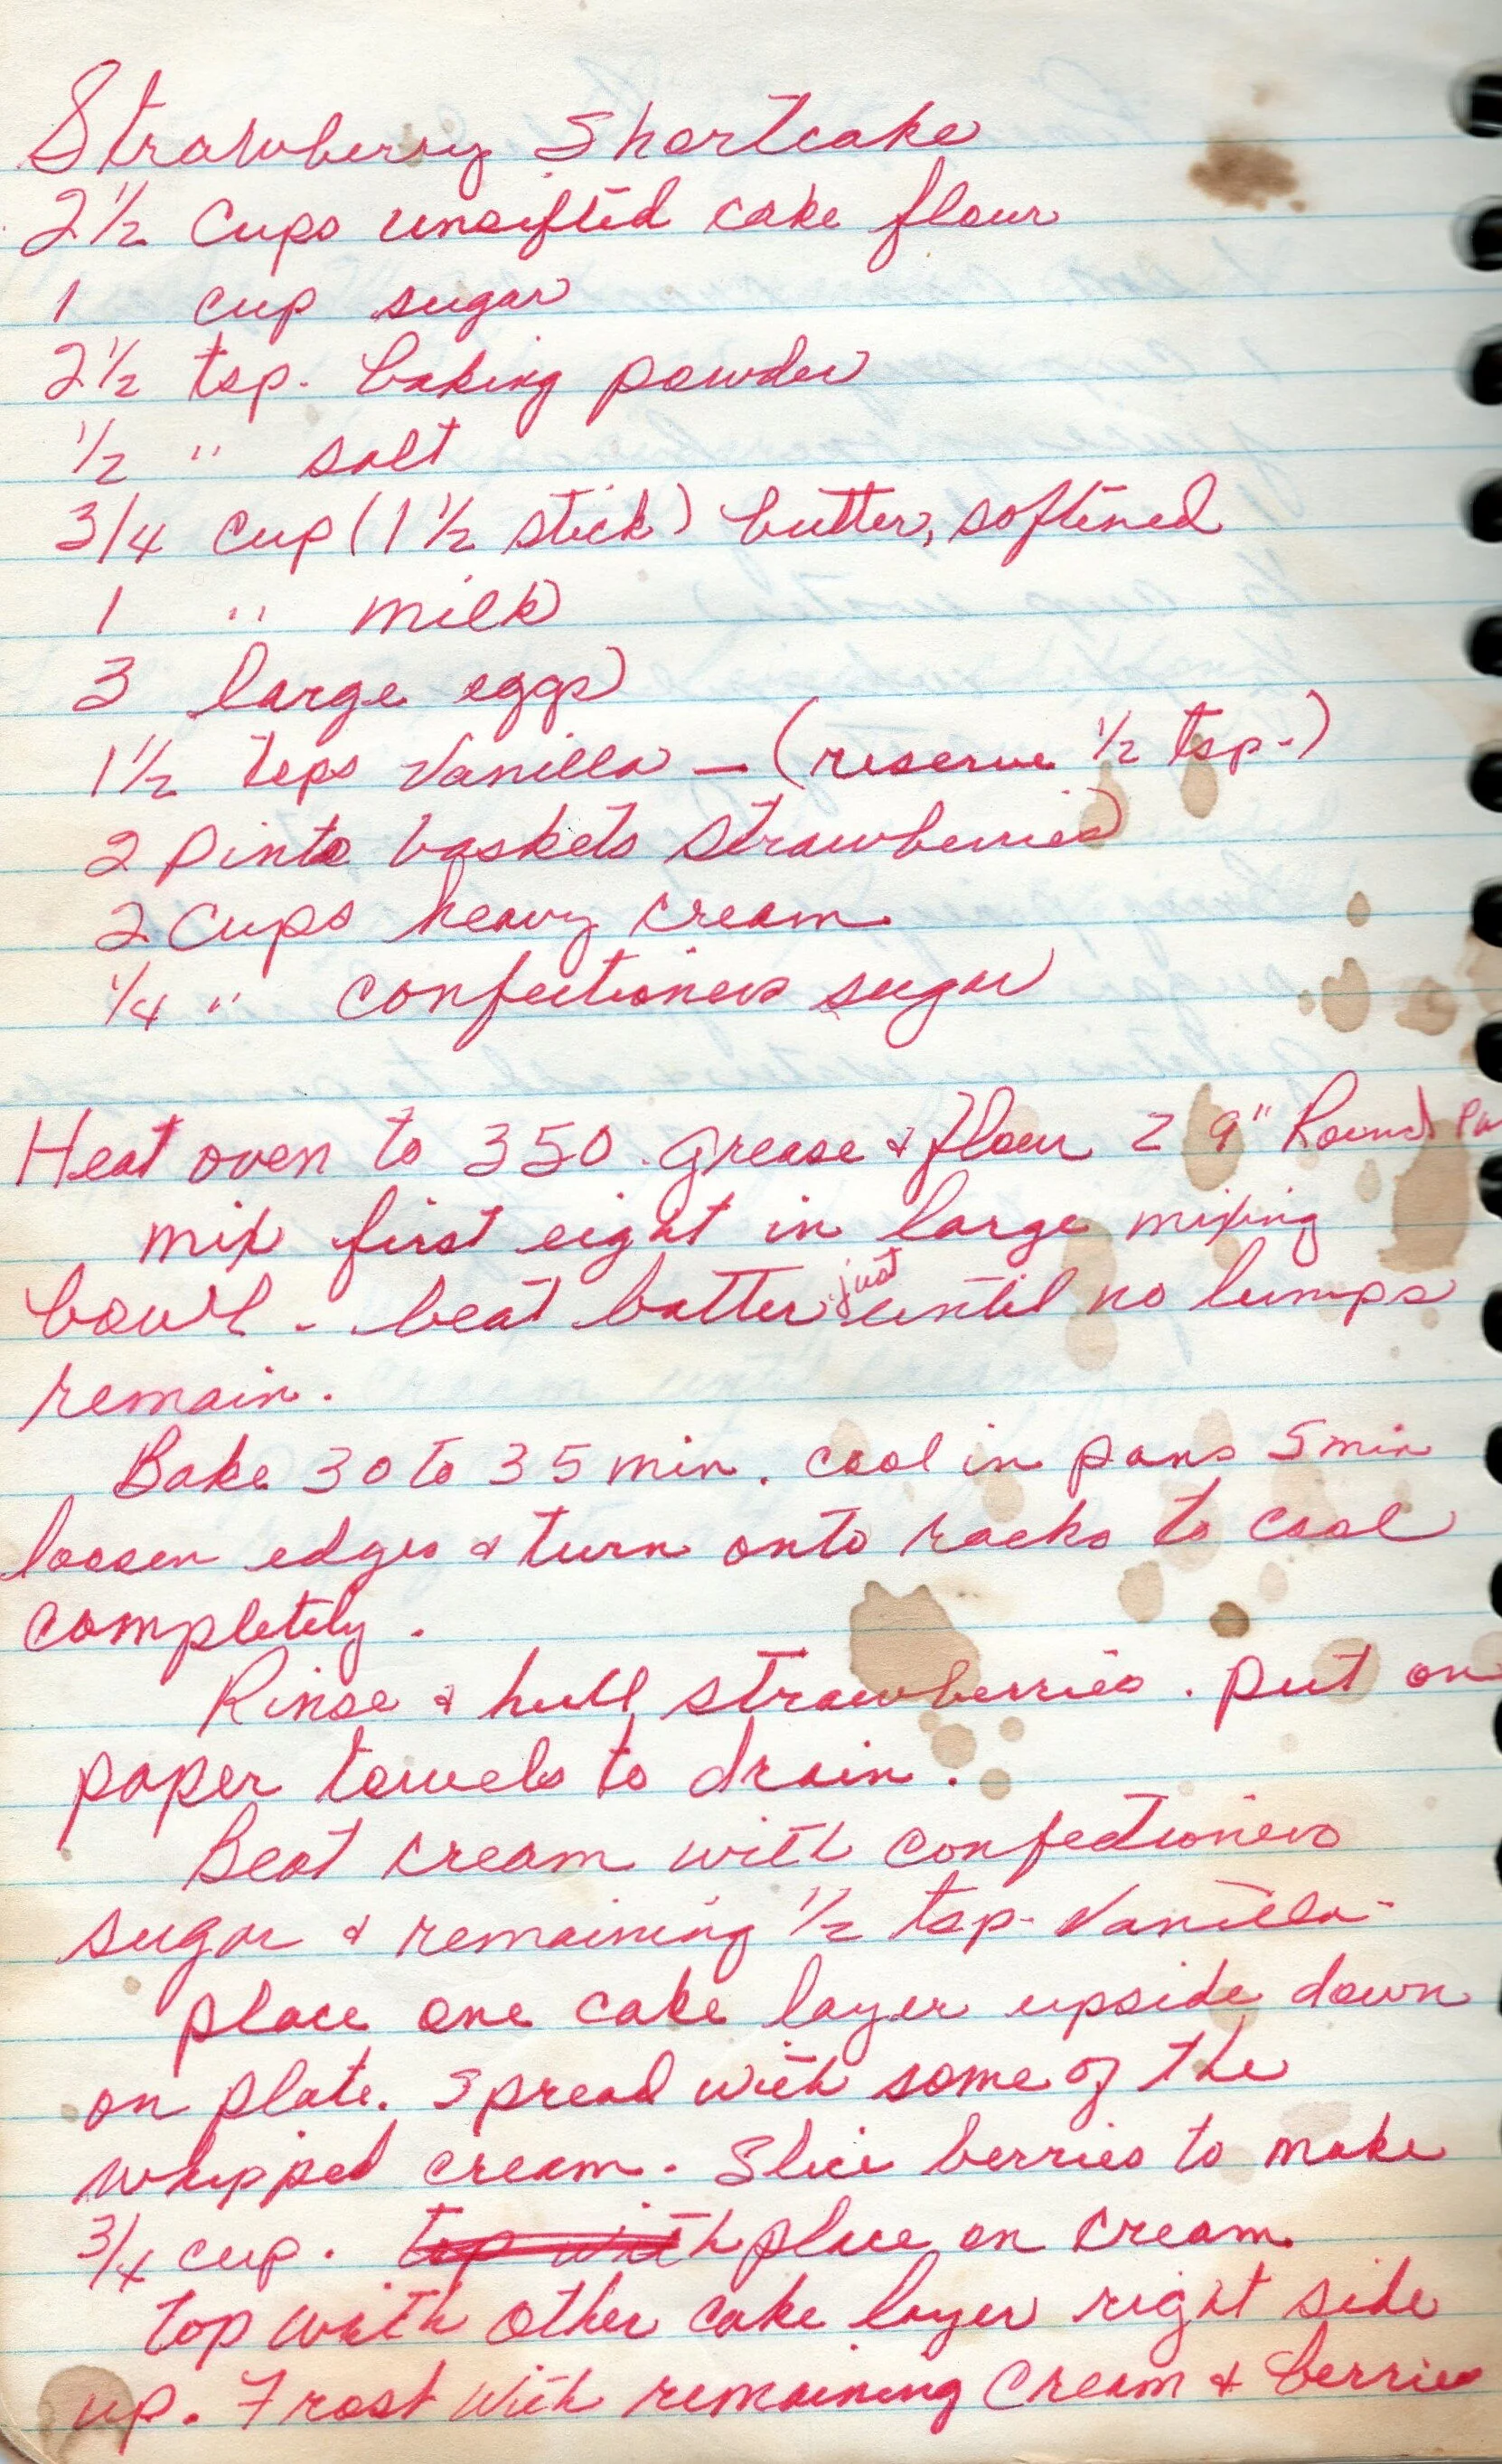 Strawberry Shortcake
2 1/2 Cups unsifted cake flour
1 cup sugar
2 1/2 tsp. baking powder
1/2 " salt
3/4 cup (1 1/2 stick) butter, softened
1 " milk
3 large eggs
1 1/2 tsps Vanilla — (reserve 1/2 tsp.)
2 pints baskets strawberries
2 Cups heavy cream
1/4 " confectioners sugar
Heat oven to 350. Grease & flour 2 9" Round Pa
mix first eight in large mixing
bowl - beat batter just until no lumps
remain.
Bake 30 to 35 min. cool in pans 5 min
loosen edges & turn onto racks to cool
completely.
Rinse & hull strawberries. put on
paper towels to drain.
Beat cream with confectioners
sugar & remaining 1/2 tsp. Vanilla.
place one cake layer upside down
on plate. Spread with some of the
whipped cream. Slice berries to make
3/4 cup. top with place on cream.
top with other cake layer right side
up. Frost with remaining cream & berries